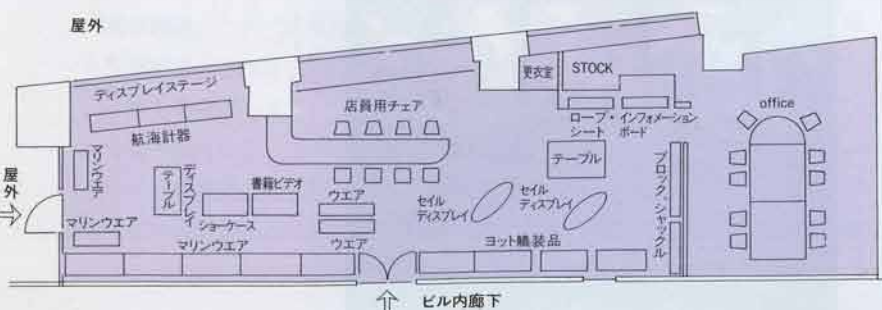 屋外
ディスプレイステージ
航海計器
店員用チェア
更衣室
STOCK
ロープ・
シート
インフォメーション
ボード
office
屋外
マリンウエア
ディスプレイ
テーブル
書籍ビデオ
ショーケース
ウエア
ウエア
セイル
ディスプレイ
セイル
ディスプレイ
テーブル
ブロック、シャックル
マリンウエア
マリンウエア
ヨット艤装品
ビル内廊下